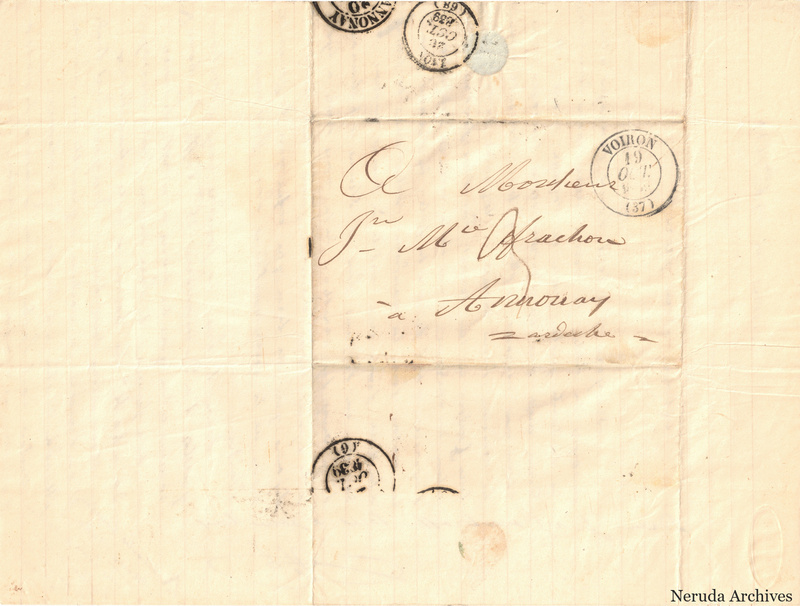 ANNONAY
20
LYON
20
OCT.
1839
(68)
VOIRON
19
OCT.
(37)
A Monsieur
Jn Mie Frachon
à Annonay
= ardeche =
(6)
1839
Neruda Archives